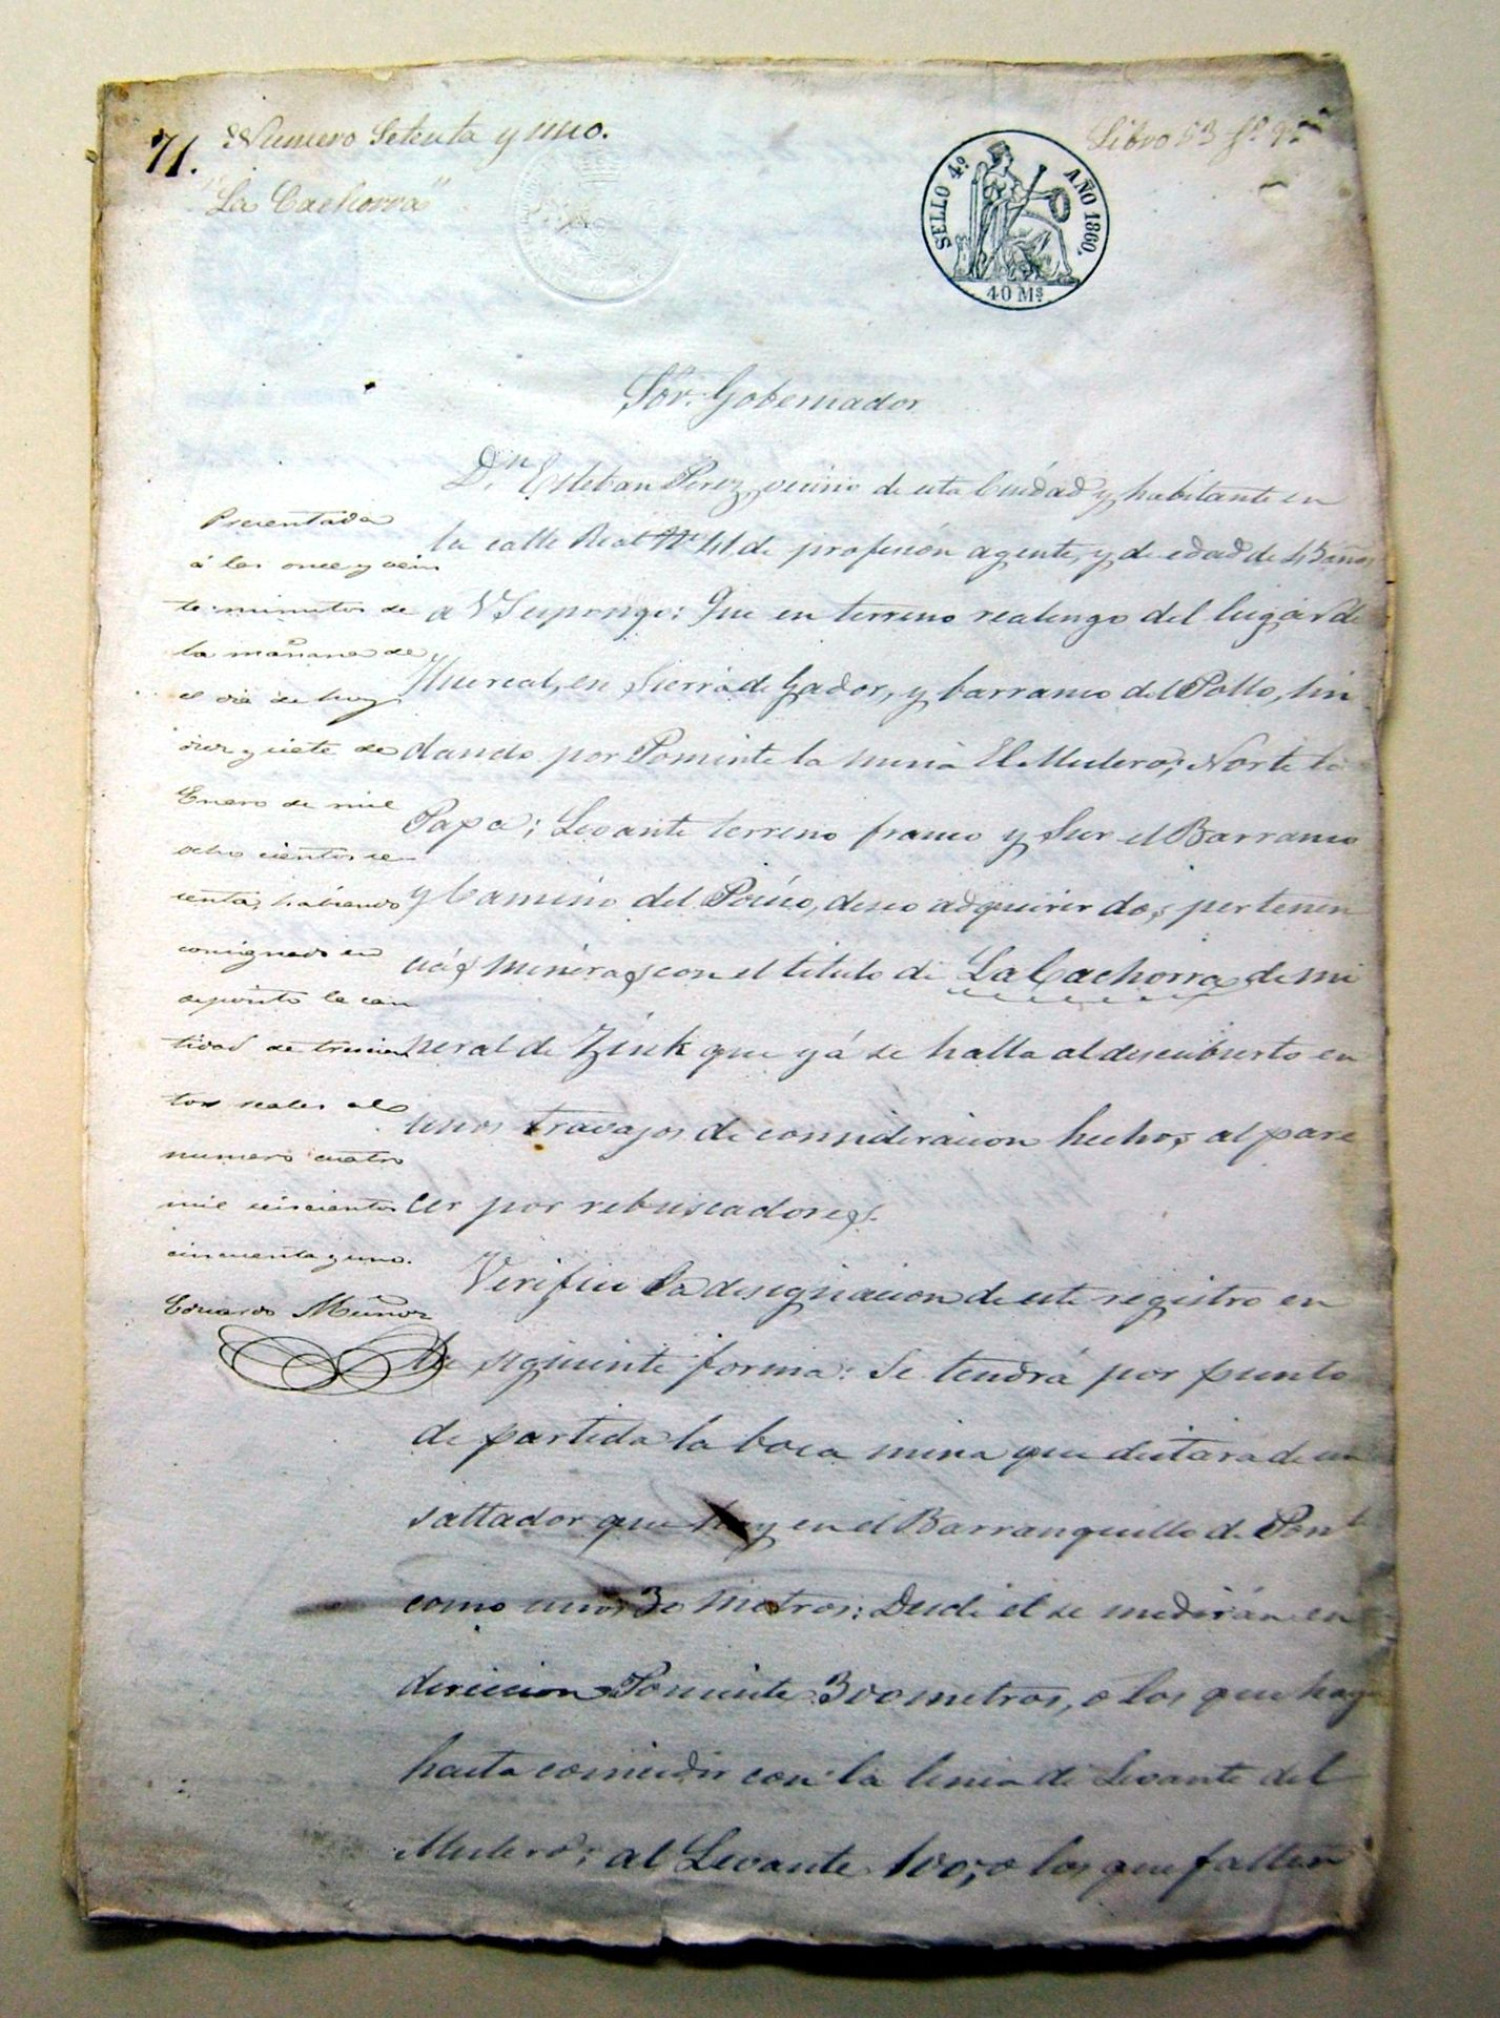 71. Numero Setenta y uno.
Libro 53 fº
"La Cachorra"
SELLO 4º AÑO 1860.
40 Ms
Sor. Gobernador
Dn Esteban Perez, vecino de esta Ciudad y habitante en
la calle Real Nº 41, de profesión agente, y de edad de 43 años
a VS expongo: Que en terreno realengo del lugar de
Huercal, en Sierra de Gador, y barranco del Pollo, lin
dando por Poniente la mina El Mulero; Norte la
Papa; Levante terreno franco y Sur el Barranco
y Camino del Pocico, deseo adquirir dos pertenen
cias mineras con el titulo de La Cachorra de mi
neral de Zink que yá se halla al descubierto en
unos travajos de consideracion hechos al pare
cer por rebuscadores.
Verifico la designacion de este registro en
la siguiente forma: Se tendrá por punto
de partida la boca mina que distará de un
saltador que hay en el Barranquillo de Pont
como unos 30 metros: Desde el se medirán en
direccion Poniente 300 metros, o los que haya
hasta coincidir con la linea de Levante del
Mulero; al Levante 100, o los que falten
Presentada
á las once y vein
te minutos de
la mañana de
el dia de hoy
diez y siete de
Enero de mil
ocho cientos se
senta, habiendo
consignado en
deposito la can
tidad de trescien
tos reales al
numero cuatro
mil seiscientos
cincuenta y uno.
Eduardo Muñoz